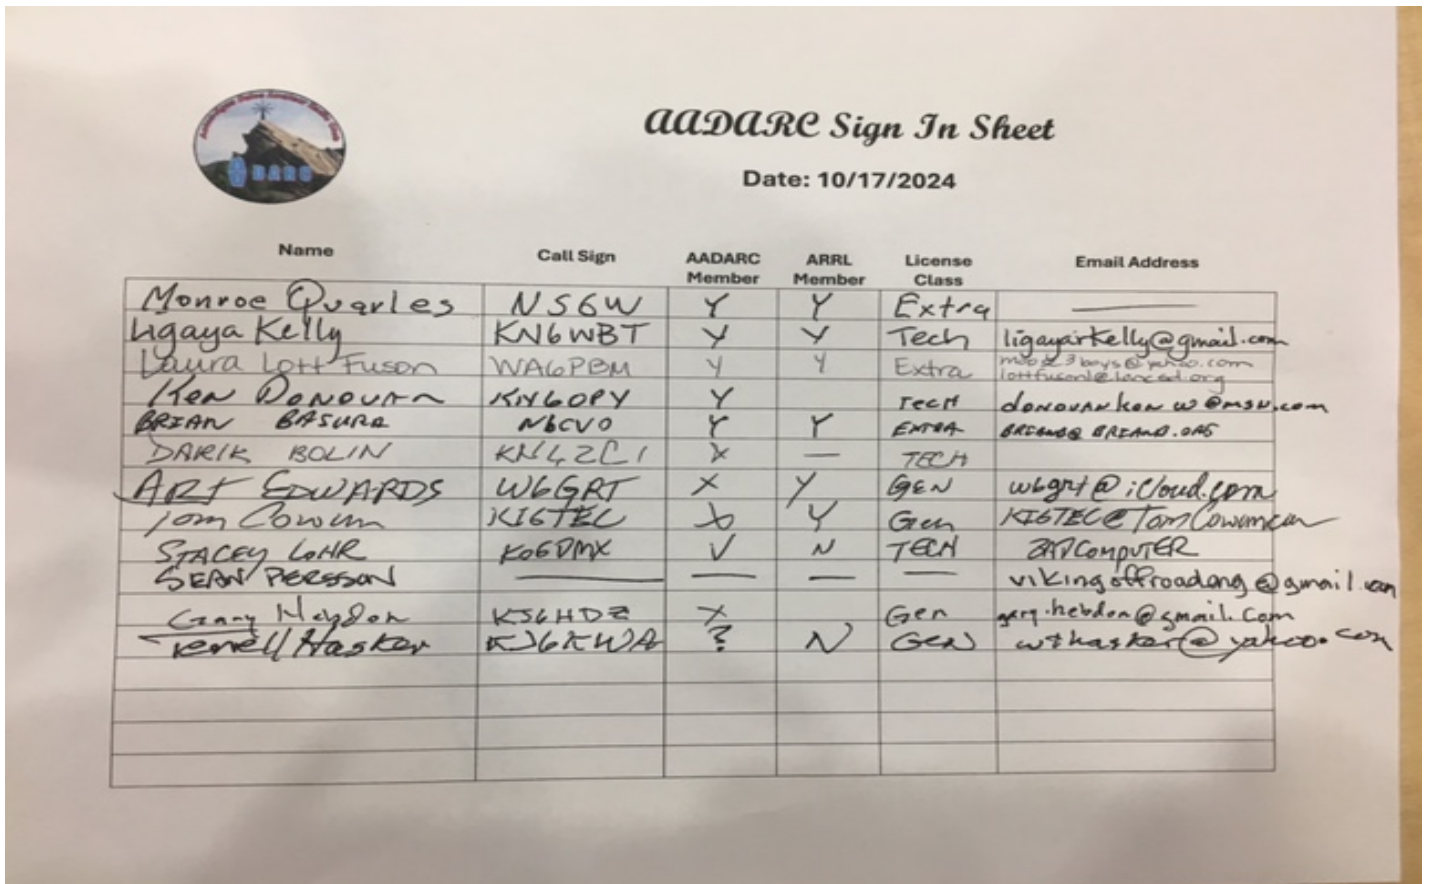 AADARC Sign In Sheet
Date: 10/17/2024
DARC
Name Call Sign AADARC Member ARRL Member License Class Email Address
Monroe Quarles NS6W Y Y Extra ———
Ligaya Kelly KN6WBT Y Y Tech ligayarkelly@gmail.com
Laura Lott Fuson WA6PBM Y Y Extra
lottfuson1@lancsd.org
Ken Donovan KN6OPY Y TECH donovankenw@msn.com
BRIAN BASURA N6CVO Y Y EXTRA BRIANB@BRIANB.ORG
DARIK BOLIN KN4ZCI X — TECH
ART EDWARDS W6GRT X Y GEN w6grt@icloud.com
Tom Cowan KI6TEC Y Gen
STACEY LOHR KO6DMX √ N TECH ZAPCOMPUTER
SEAN PERSSON ——— — — — @gmail.com
KJ6HDZ X Gen @gmail.com
Terrell Hasker KJ6KWA ? N GEN wthasker@yahoo.com